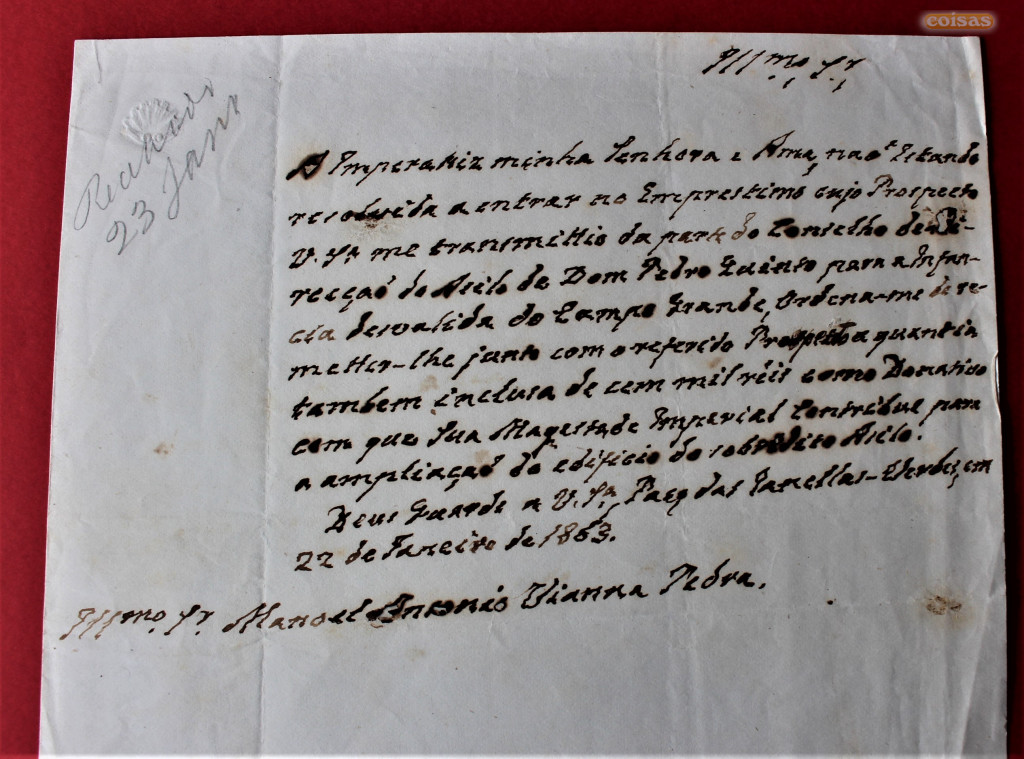 coisas
Illmo. Sr.
Recebido
23 Janr
A Imperatriz minha Senhora e Ama, não Estando
resolvida a entrar no Emprestimo cujo Prospecto
V. Sa. me transmittio da parte do Conselho de Di-
recção do Asilo de Dom Pedro Quinto para a Infan-
cia desvalida do Campo Grande, Ordena-me de re-
metter-lhe junto com o referido Prospecto a quantia
tambem inclusa de cem mil réis como Donativo
com que Sua Magestade Imperial Contribue para
a ampliação do edificio do sobredito Asilo.
Deus Guarde a V. Sa. Paço das Janellas-Verdes, em
22 de Janeiro de 1863.
Illmo. Sr. Manoel Antonio Vianna Pedra.